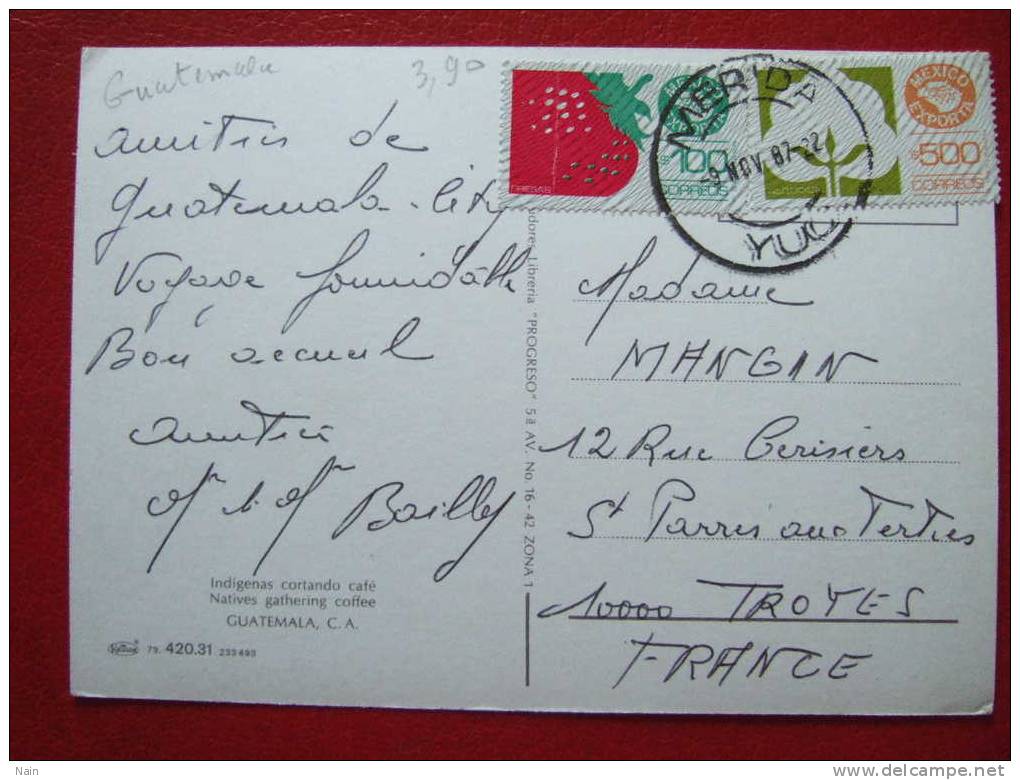 Guatemala
3,90
amitiés de
Guatemala-City
Voyage formidable
Bon accueil
amitiés
Mr & Mr Bailly
Indígenas cortando café
Natives gathering coffee
GUATEMALA, C. A.
79. 420.31 233493
dores Libreria "PROGRESO" 5ª AV. No. 16-42 ZONA 1
FRESAS
$100
CORREOS
MEXICO
EXPORTA
$500
CORREOS
MERIDA
9 NOV. 87-22
YUC
Madame
MANGIN
12 Rue Cerisiers
St Parres aux Tertres
10000 TROYES
FRANCE
Nain
delcampe.net